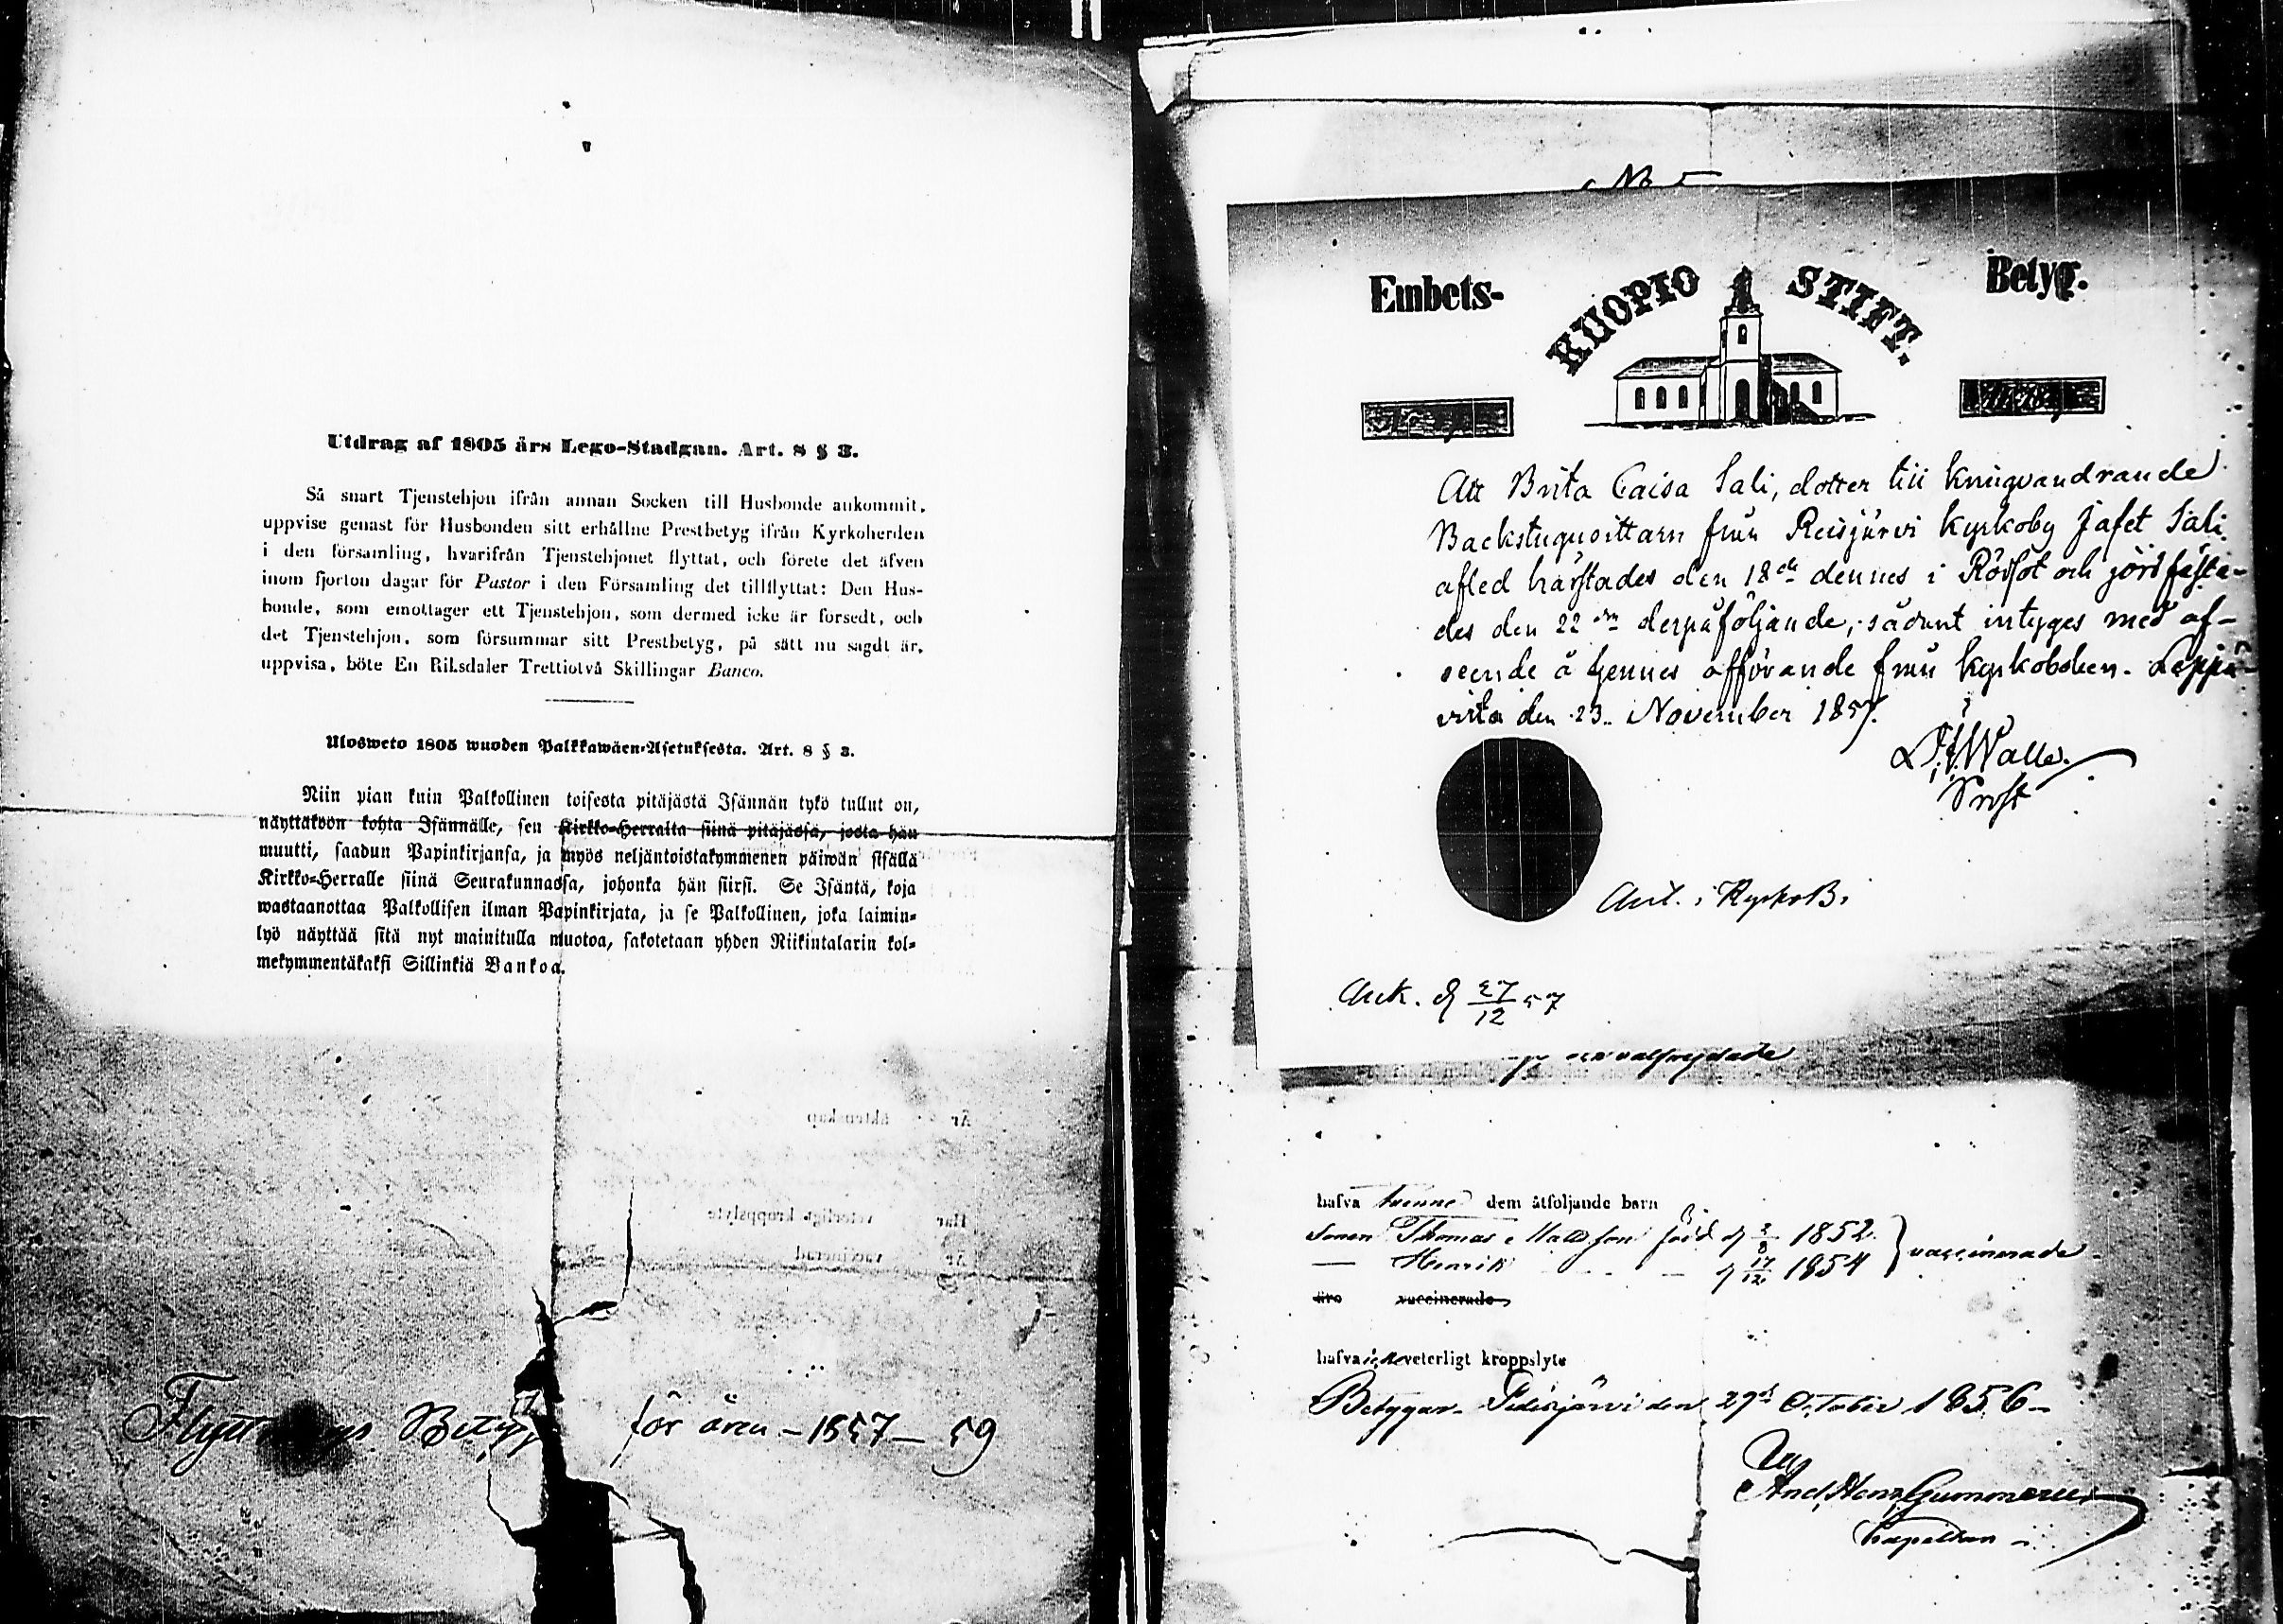 Utdrag af 1805 års Lego-Stadgan. Art. 8 § 3.
Så snart Tjenstehjon ifrån annan Socken till Husbonde ankommit,
uppvise genast för Husbonden sitt erhållne Prestbetyg ifrån Kyrkoherden
i den församling, hvarifrån Tjenstehjonet flyttat, och förete det äfven
inom fjorton dagar för Pastor i den Församling det tillflyttat: Den Hus-
bonde, som emottager ett Tjenstehjon, som dermed icke är försedt, och
det Tjenstehjon, som försummar sitt Prestbetyg, på sätt nu sagdt är,
uppvisa, böte En Riksdaler Trettiotvå Skillingar Banco.
Ulosweto 1805 wuoden Palkkawäen-Asetuksesta. Art. 8 § 3.
Niin pian kuin Palkollinen toisesta pitäjästä Isännän tykö tullut on,
näyttäköön kohta Isännälle, sen Kirkko-Herralta siinä pitäjässä, josta hän
muutti, saadun Papinkirjansa, ja myös neljäntoistakymmenen päiwän sisällä
Kirkko-Herralle siinä Seurakunnassa, johonka hän siirsi. Se Isäntä, koja
wastaanottaa Palkollisen ilman Papinkirjata, ja se Palkollinen, joka laimin-
lyö näyttää sitä nyt mainitulla muotoa, sakotetaan yhden Riikintalarin kol-
mekymmentäkaksi Sillinkiä Bankoa.
Är äktenskap
Har veterligt kroppslyte
Är vaccinerad
Betyg för åren - 1857 - 59
No 5
Embets- KUOPIO STIFT. Betyg.
Att Brita Caisa Sali, dotter till kringvandrande
Backstugusittarn från Reisjärvi Kyrkoby Jafet Sali
afled härstädes den 18de dennes i Rödsot och jordfästa-
des den 22dra derpåföljande, sådant intygas med af-
seende å hennes afförande från kyrkoboken. Leppä-
virta den 23. November 1857.
Walle.
Prost
Ant. i KyrkoB.
Ank. d 27/12 57
välfrejdade
hafva tvenne dem åtföljande barn
Sonen Thomas född d 1852 } vaccinerade
— Henrik — d 17/12 1854
äro vaccinerade
hafva icke veterligt kroppslyte
Betygar. Pidisjärvi den 29de October 1856 -
And. Henr. Gummerus
Capellan -